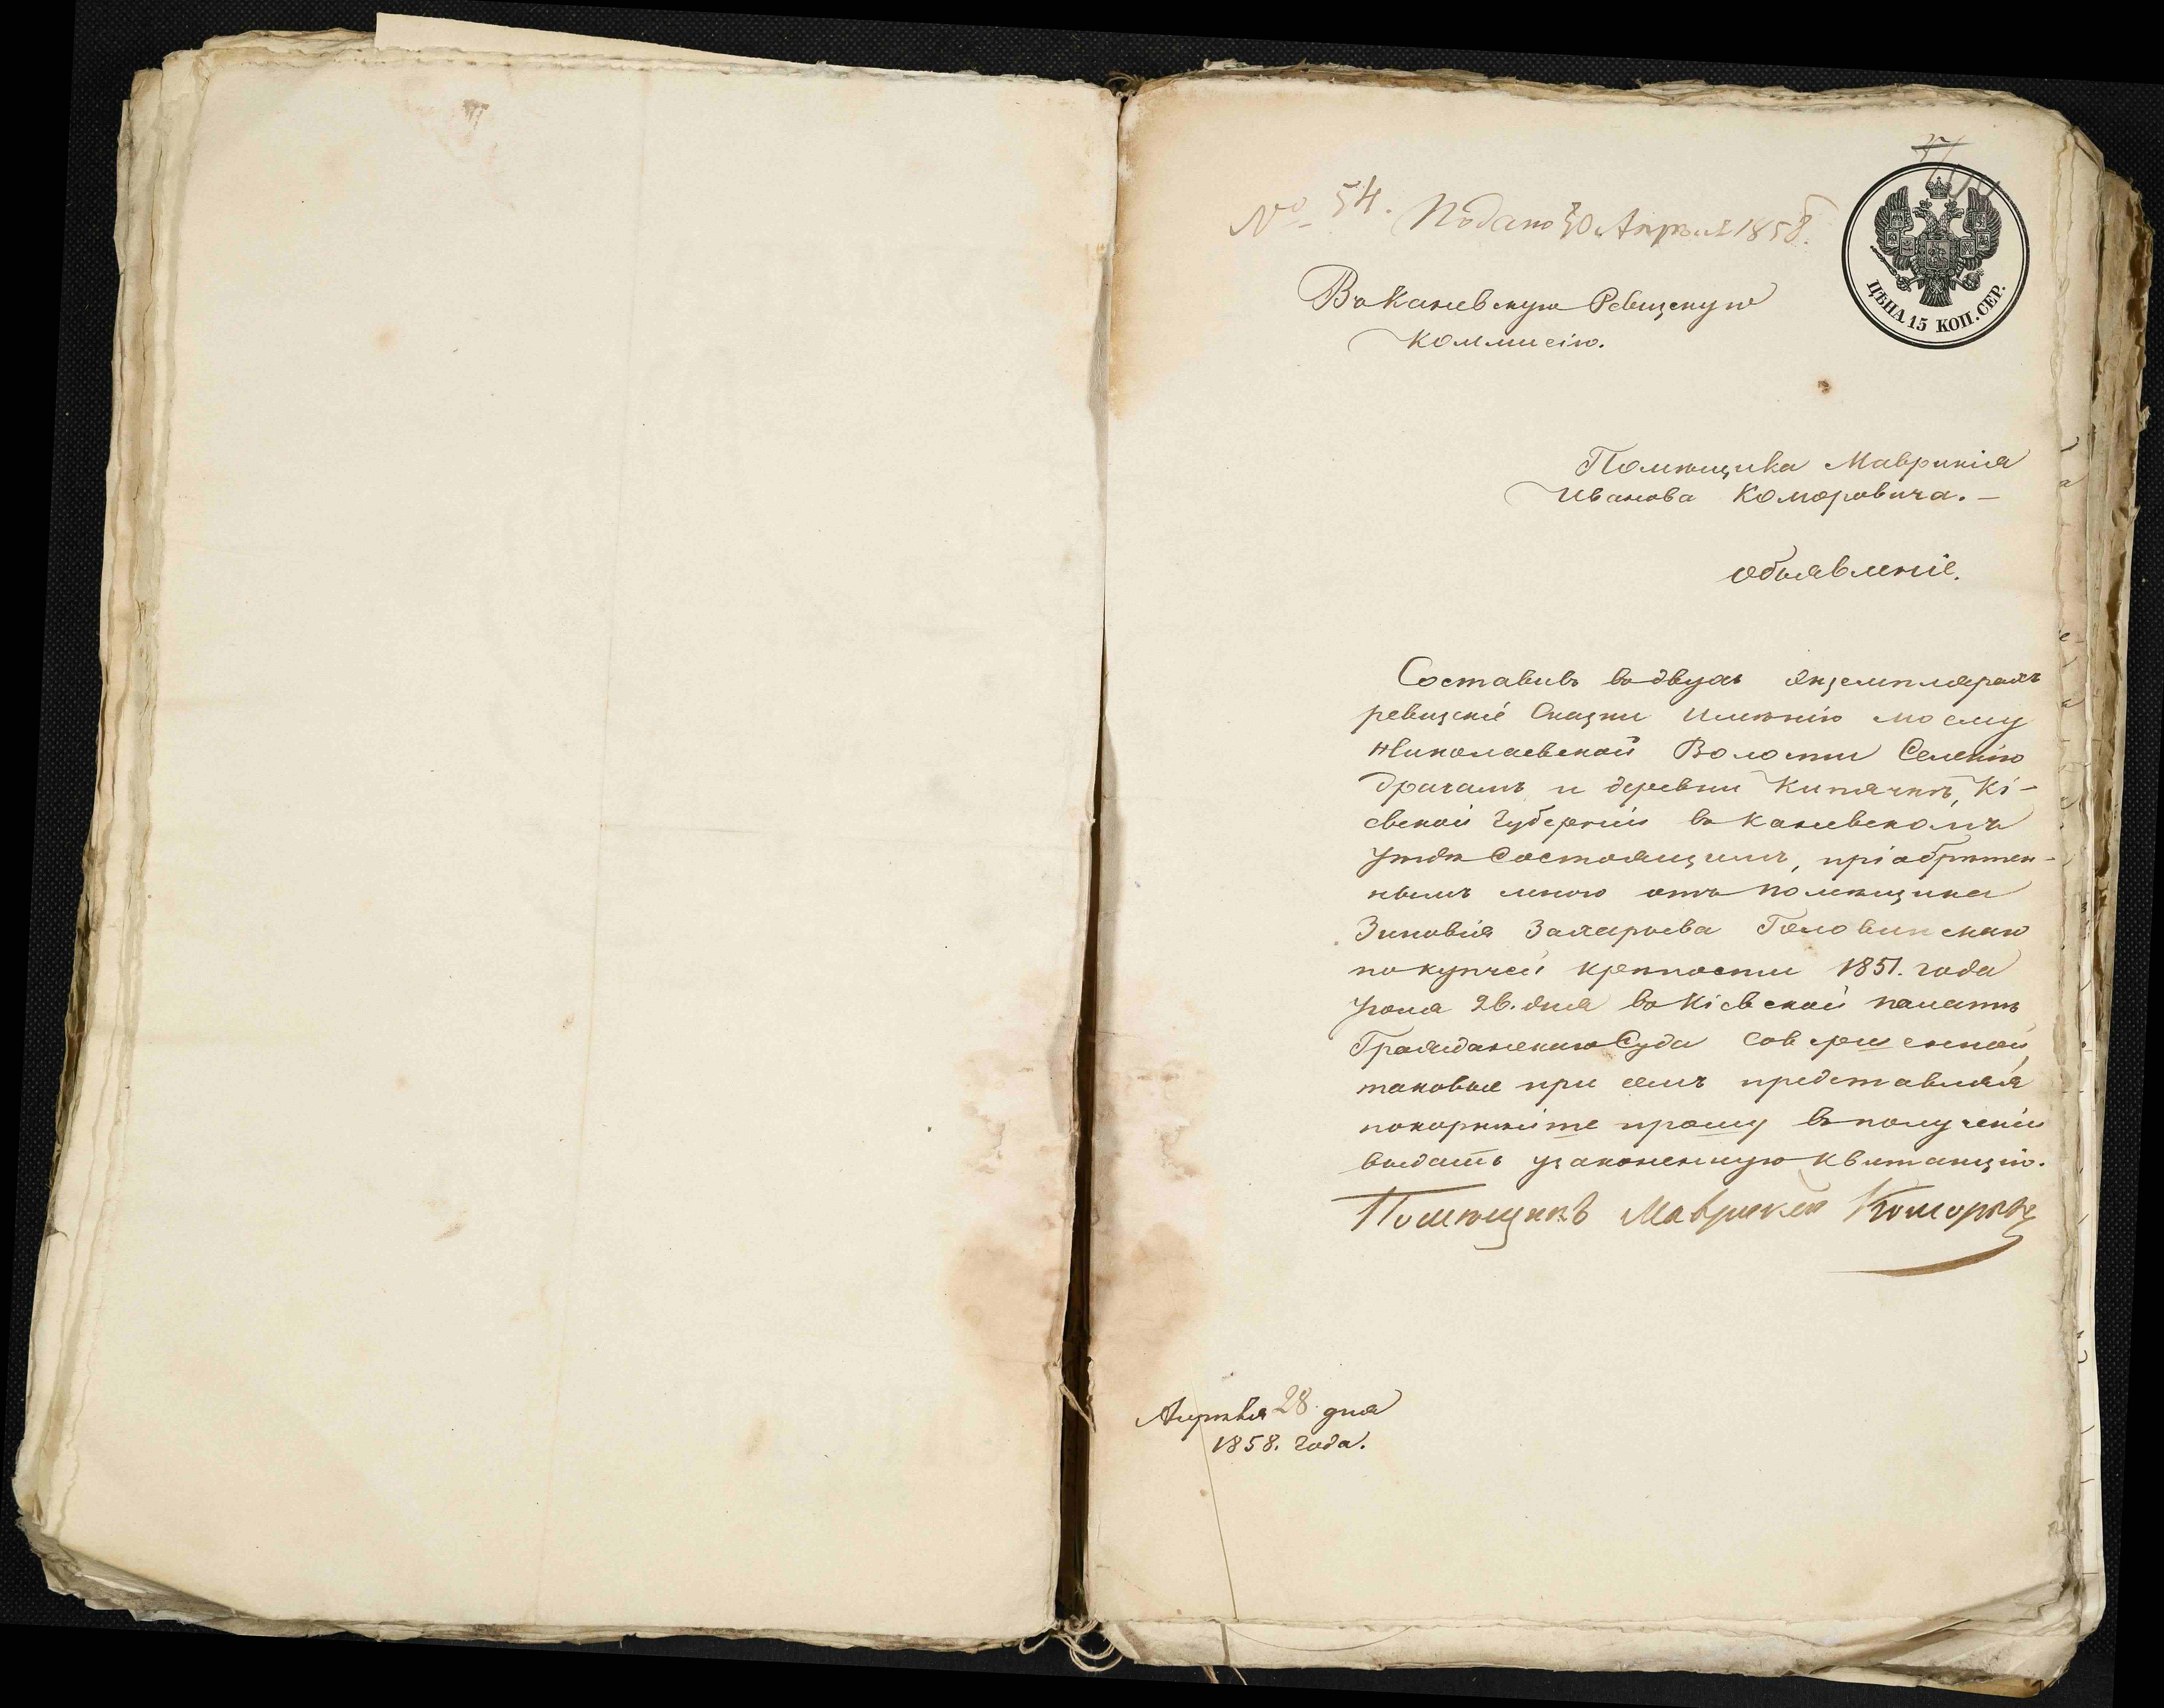 № 54. Подано 30 Апреля 1858.
ЦѢНА 15 КОП. СЕР.
Въ Каневскую Ревизскую
Коммисію.
Помѣщика Маврикія
Иванова Коморовича. —
Обьявленіе.
Составивъ въ двухъ экземплярахъ
ревизскіе Сказки Имѣнію моему
Николаевской Волости Селенію
Драчамъ и деревни Кипячкѣ, Кі-
евской Губерніи въ Каневскомъ
Уѣздѣ Состоящимъ, пріобрѣтен-
нымъ мною отъ помѣщика
Зиновія Захарьева Головинскаго
по купчей крепности 1851. года
Іюня 26. дня въ Кіевской палатѣ
Гражданскаго Суда Совершенной
таковые при семъ представляя
покорнѣйше прошу въ полученіи
выдать узаконенную Квитанцію.
Помѣщикъ Маврикій
Апрѣля 28 дня
1858. года.